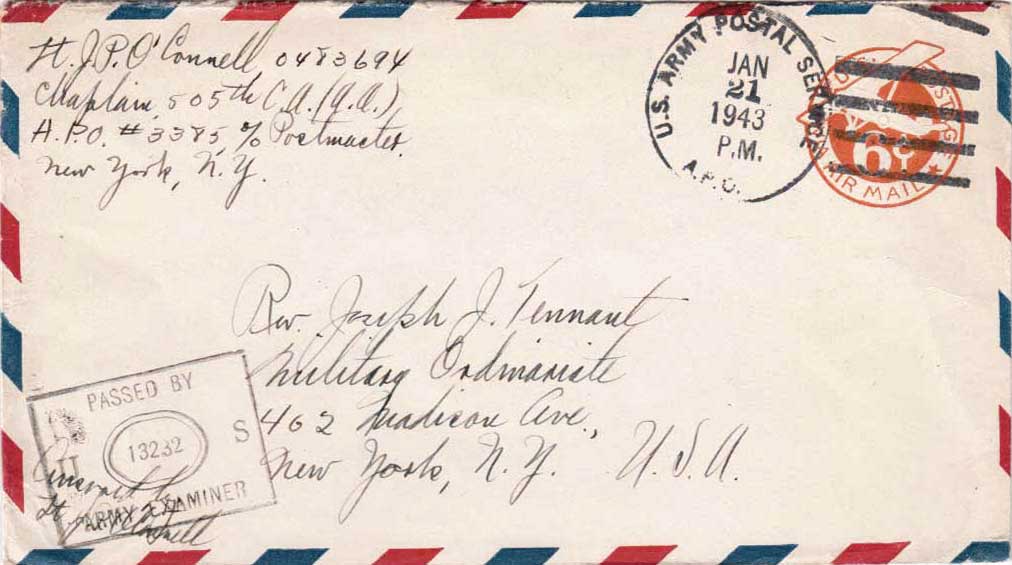 Lt. J.P. O'Connell 0483694
Chaplain, 505th C.A. (A.A.),
A.P.O. #3385 c/o Postmaster.
New York, N.Y.
U.S. ARMY POSTAL SERVICE
JAN
21
1943
P.M.
A.P.O.
U.S. POSTAGE
6¢
AIR MAIL
Rev. Joseph J. Tennant
Military Ordinariate
462 Madison Ave.,
New York, N.Y. U.S.A.
PASSED BY
S
13232
ARMY EXAMINER
Censored by
Lt. J.P. O'Connell